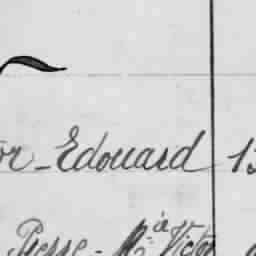 or-Edouard 13
Pierre-M.ie Victor